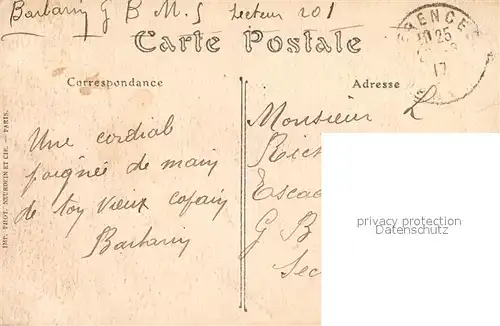 Barbarin G B M. S Secteur 201
Carte Postale
Correspondance
Adresse
10 25
17
Monsieur
Une cordial
poignée de main
de ton vieux copain
Barbarin
Rich
Escad
G B
Sec
privacy protection
Datenschutz
IMP. PHOT. NEURDEIN ET CIE. — PARIS.